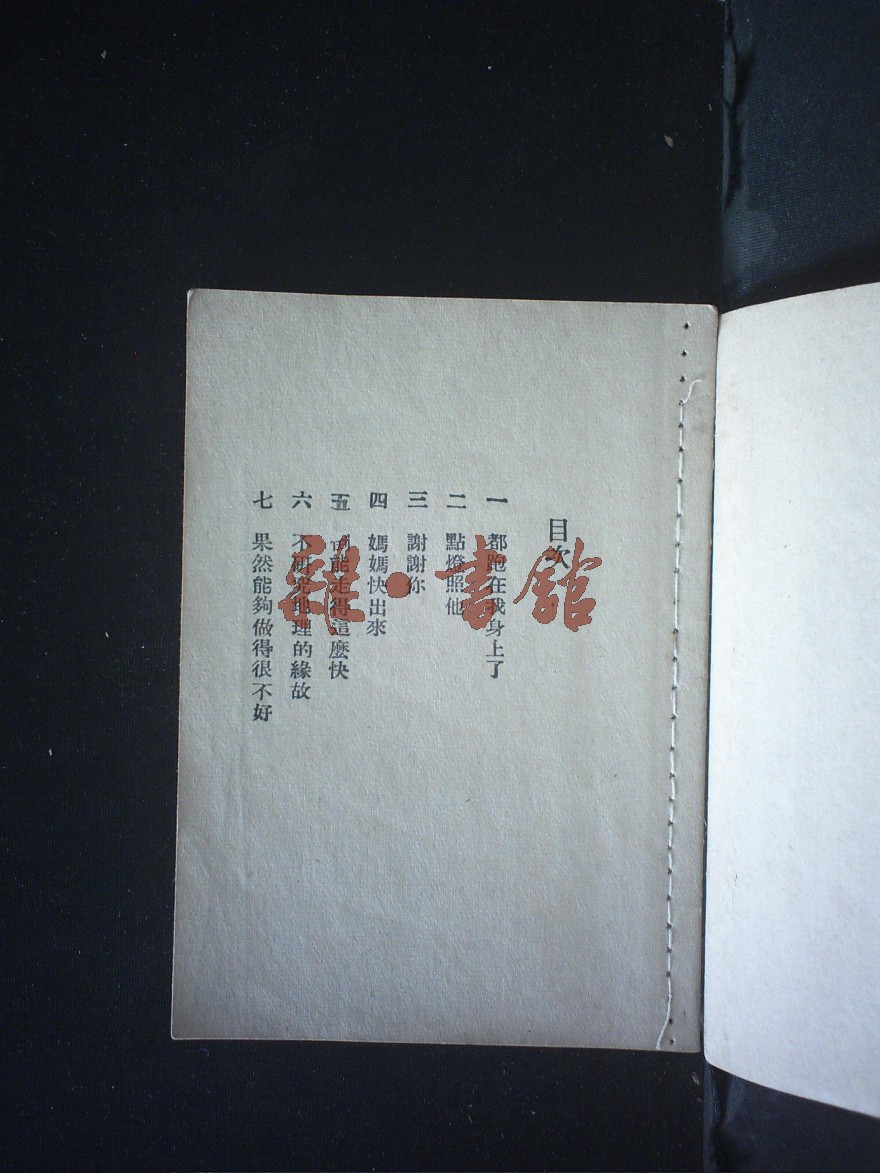 目次
一 都跑在我身上了
二 點燈照他
三 謝謝你
四 媽媽快出來
五 能走得這麼快
六 不研究地理的緣故
七 果然能夠做得很不好
雜·書館